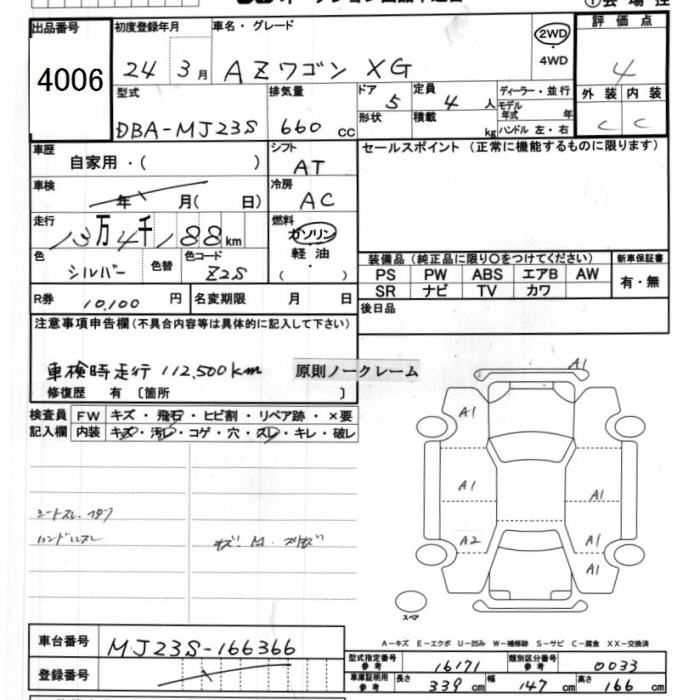 出品番号 初度登録年月 車名・グレード 評価点
4006 24 3月 AZワゴン XG 2WD 4
4WD
外装 内装
C C
型式 排気量 ドア 定員 ディーラー・並行
DBA-MJ23S 660 cc 5 4 人 モデル年式 年
形状 積載 kg ハンドル 左・右
車歴 シフト セールスポイント (正常に機能するものに限ります)
自家用・( ) AT
車検 冷房
年 月( 日) AC
走行 燃料
13万4千188km ガソリン
軽油
( ・ )
色 色替 色コード
シルバー Z2S
装備品 (純正品に限り〇をつけてください) 新車保証書
PS PW ABS エアB AW 有・無
SR ナビ TV カワ
R券 10,100 円 名変期限 月 日 後日品
注意事項申告欄(不具合内容等は具体的に記入して下さい)
車検時走行 112,500km 原則ノークレーム
修復歴 有 〔箇所 〕
検査員 FW キズ・飛石・ヒビ割・リペア跡・×要
記入欄 内装 キズ・汚レ・コゲ・穴・スレ・キレ・破レ
シートスレ
ハンドルスレ
A1
A1
A1 A1
A2 A1
A1
スペア
A-キズ E-エクボ U-凹み W-補修跡 S-サビ C-腐食 XX-交換済
車台番号 MJ23S-166366
登録番号
型式指定番号 参考 16171 類別区分番号 参考 0033
車庫証明用 参考 長さ 339 cm 幅 147 cm 高さ 166 cm